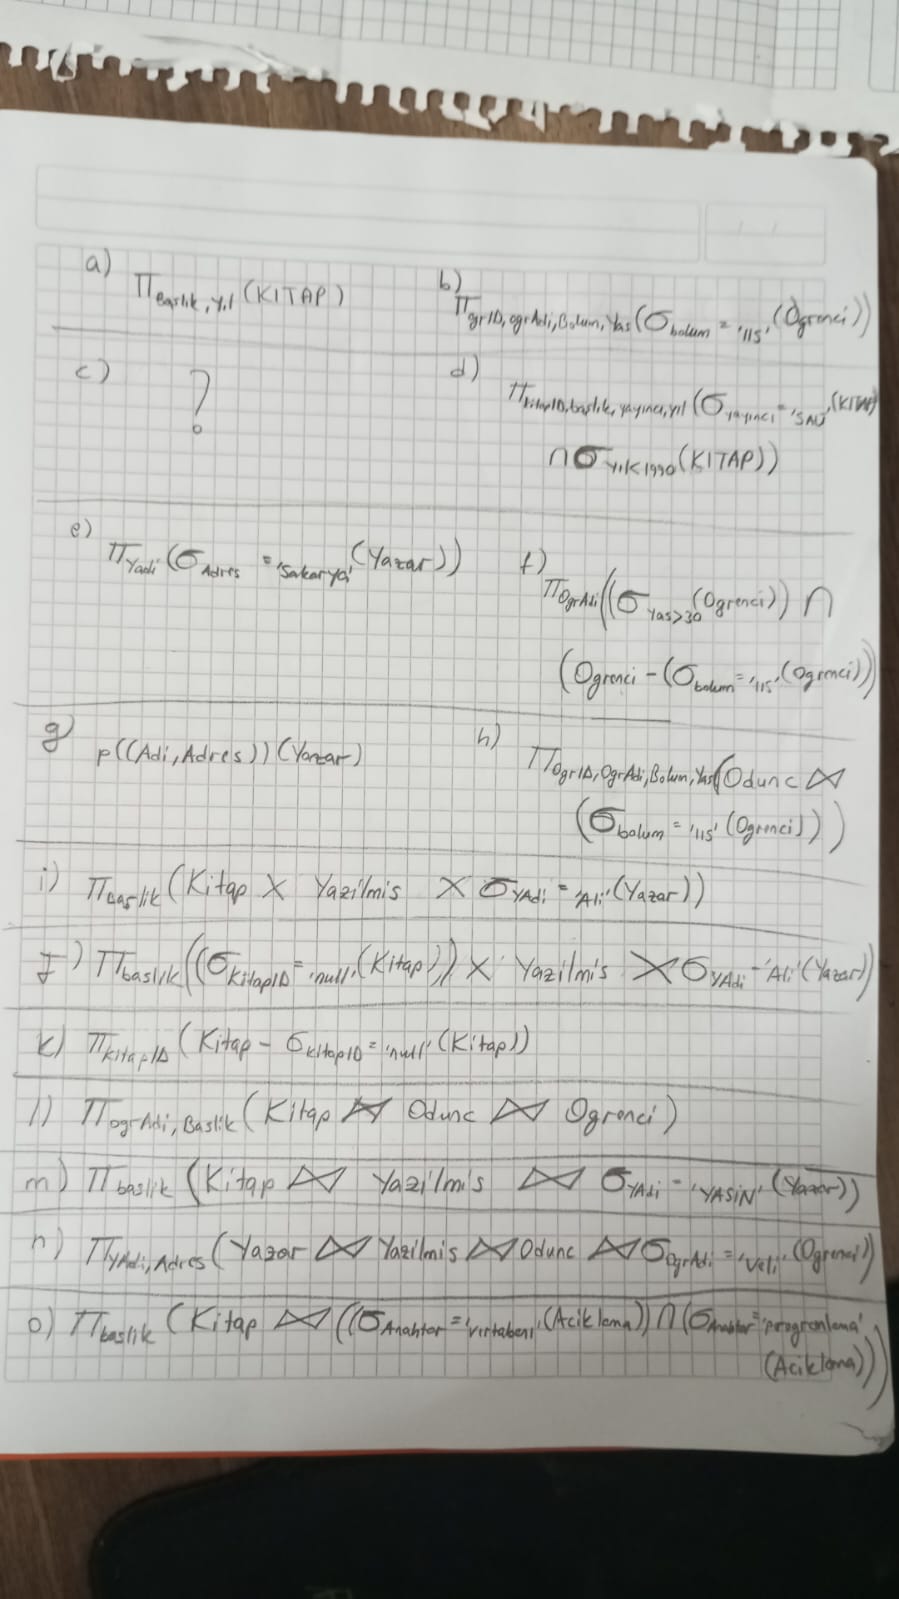 a) π Baslik, Yil (KITAP)
b) π ogrID, ogrAdi, Bolum, Yas (σ bolum = '115' (Ogrenci))
c) ?
d) π kitapID, baslik, yayinci, yil (σ yayinci = 'SAU' (KITAP)
∩ σ Yil<1990 (KITAP))
e) π Yadi (σ Adres = 'Sakarya' (Yazar))
f) π OgrAdi ((σ Yas>30 (Ogrenci)) ∩
(Ogrenci - (σ bolum = '115' (Ogrenci))
g) p((Adi, Adres)) (Yazar)
h) π OgrID, OgrAdi, Bolum, Yas (Odunc ⋈
(σ bolum = '115' (Ogrenci)))
i) π Baslik (Kitap X Yazilmis X σ YAdi = 'Ali' (Yazar))
J) π baslik ((σ KitapID = 'null' (Kitap)) X Yazilmis X σ YAdi = 'Ali' (Yazar))
k) π KitapID (Kitap - σ KitapID = 'null' (Kitap))
l) π ogrAdi, Baslik (Kitap ⋈ Odunc ⋈ Ogrenci)
m) π baslik (Kitap ⋈ Yazilmis ⋈ σ YAdi = 'YASiN' (Yazar))
n) π YAdi, Adres (Yazar ⋈ Yazilmis ⋈ Odunc ⋈ σ OgrAdi = 'Veli' (Ogrenci))
o) π baslik (Kitap ⋈ ((σ Anahtar = (Aciklama)) ∩ (σ Anahtar =
(Aciklama)))